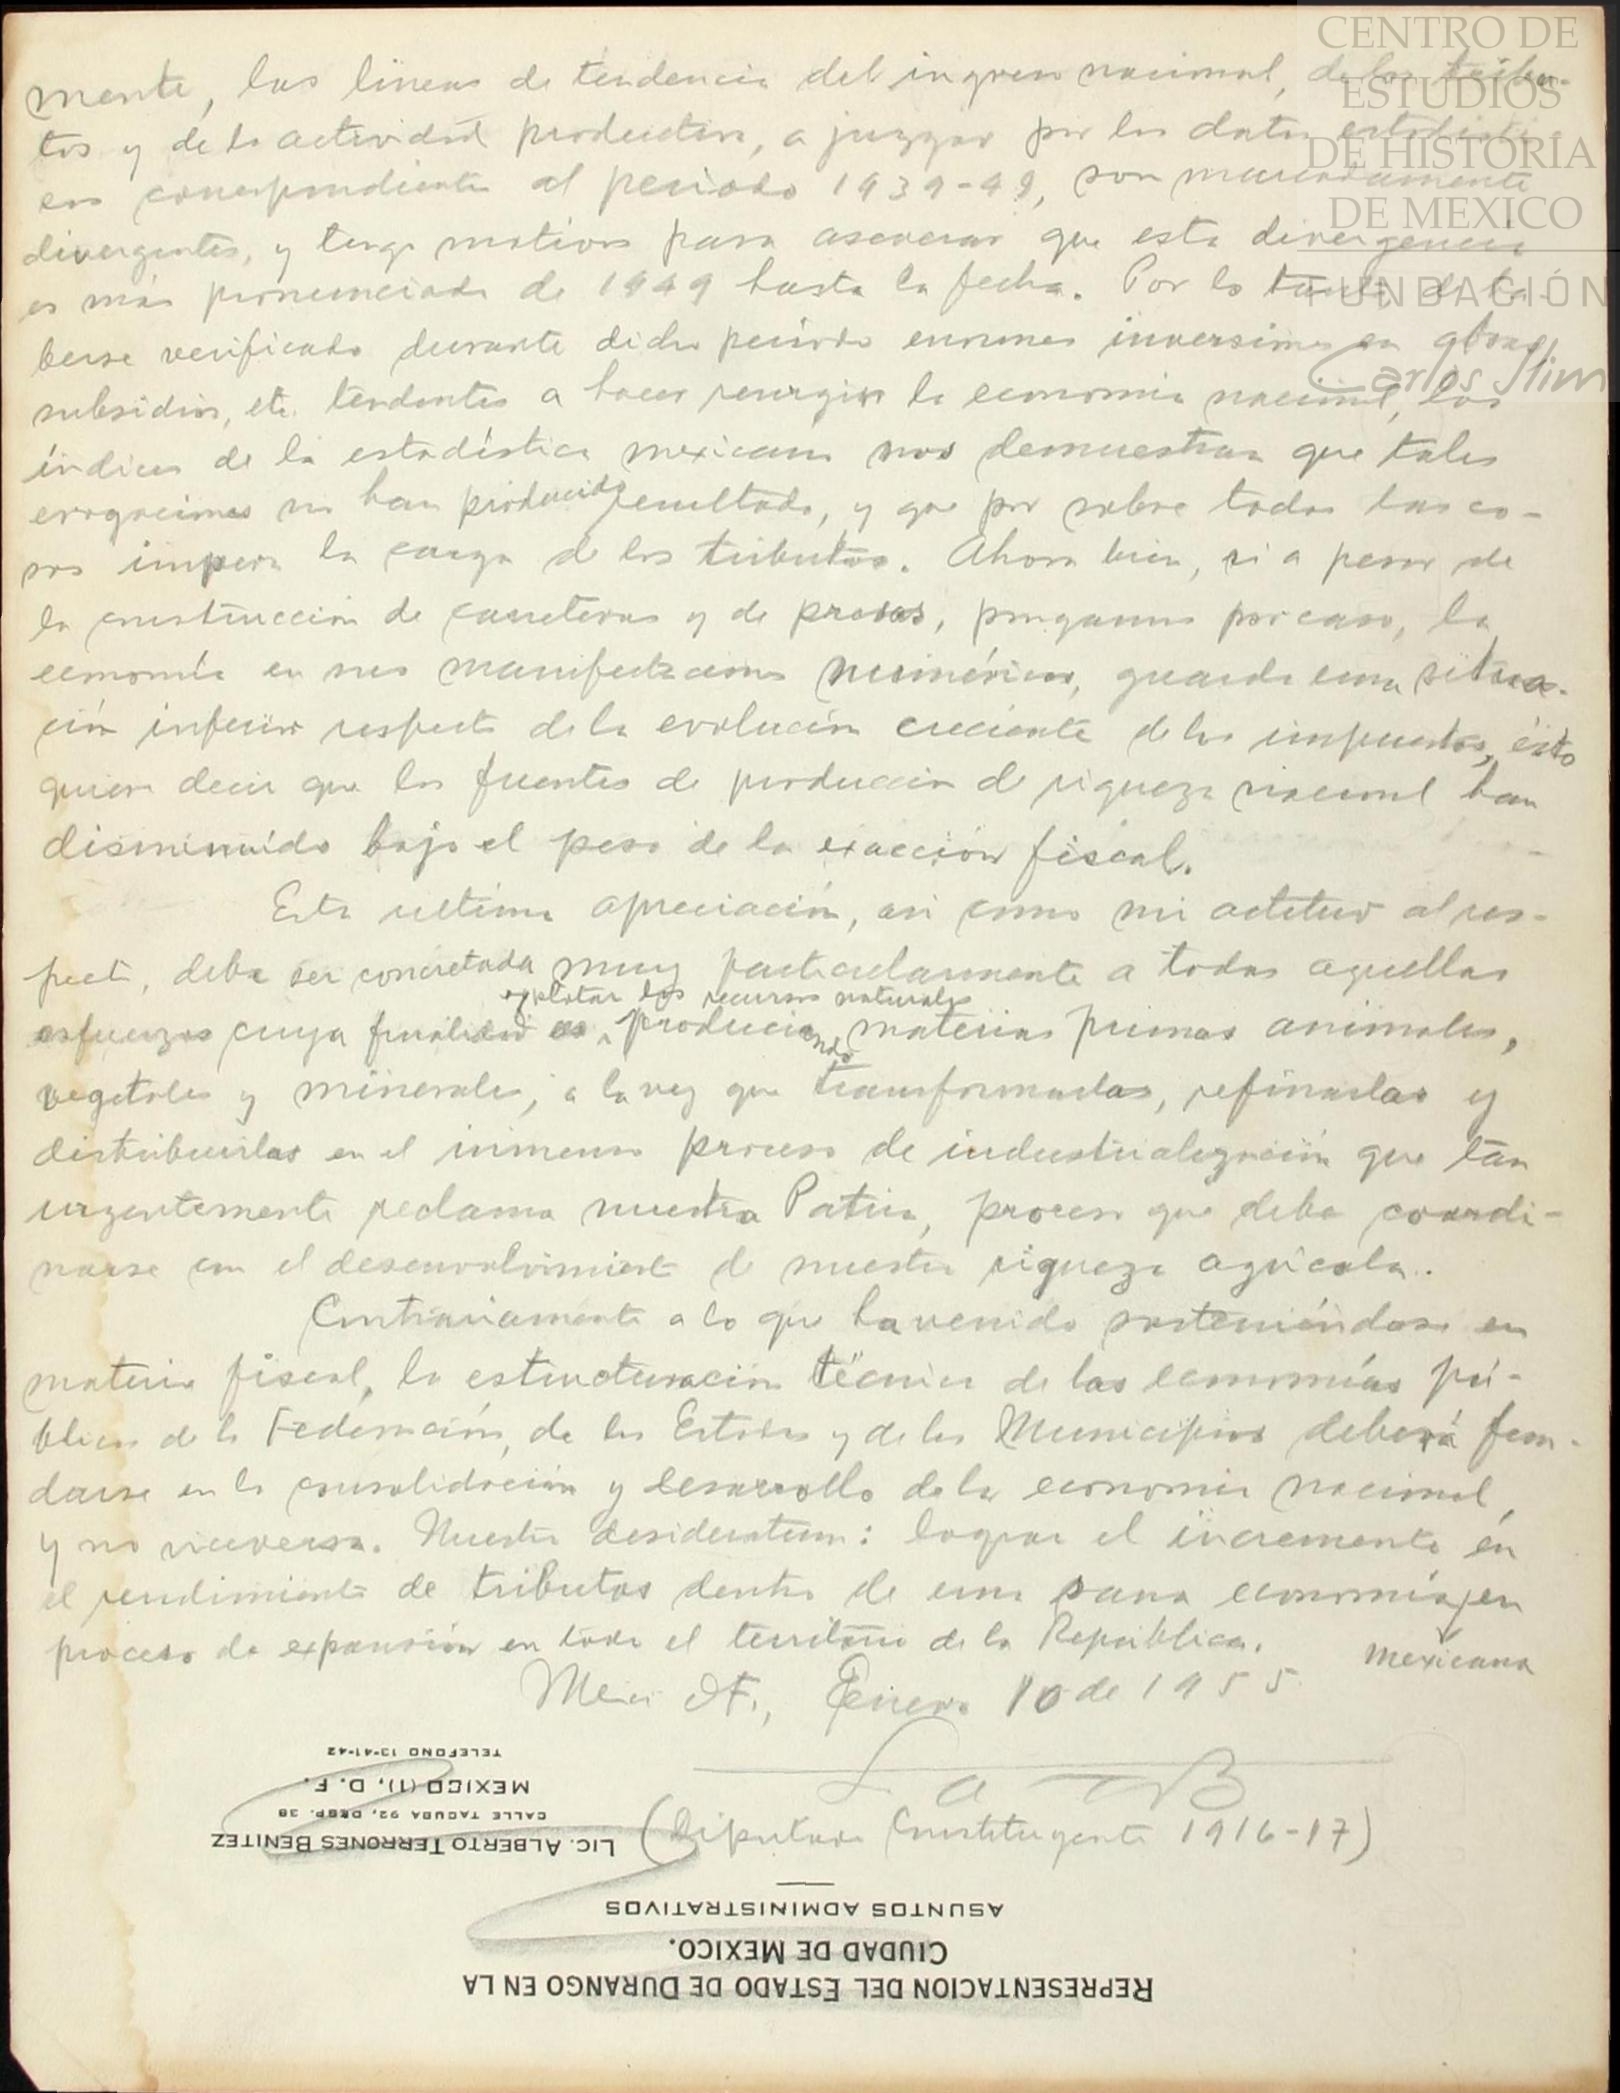 CENTRO DE
ESTUDIOS
DE HISTORIA
DE MEXICO
FUNDACIÓN
Carlos Slim
mente, las lineas de tendencia del ingreso nacional, de los tribu-
tos y de la actividad productiva, a juzgar por los datos estadísti-
cos correspondientes al periodo 1939-49, son marcadamente
divergentes, y tengo motivos para aseverar que esta divergencia
es más pronunciada de 1949 hasta la fecha. Por lo tanto de ha-
berse verificado durante dicho período enormes inversiones en obras,
subsidios, etc. tendentes a hacer resurgir la economia nacional, los
índices de la estadística mexicana nos demuestran que tales
erogaciones no han producido resultado, y que por sobre todas las co-
sas impera la carga de los tributos. Ahora bien, si a pesar de
la construcción de carreteras y de presas, pongamos por caso, la
economía en sus manifestaciones numéricas, guarda una situa-
ción inferior respecto de la evolución creciente de los impuestos, ésto
quiere decir que las fuentes de producción de riqueza nacional han
disminuído bajo el peso de la exacción fiscal.
Esta última apreciación, asi como mi actitud al res-
pecto, debe ser concretada muy particularmente a todos aquellos
explotar los recursos naturales
esfuerzos cuya finalidad es produciendo materias primas animales,
vegetales y minerales, a la vez que transformarlas, refinarlas y
distribuirlas en el inmenso proceso de industrialización que tan
urgentemente reclama nuestra Patria, proceso que debe coordi-
narse con el desenvolvimiento de nuestra riqueza agrícola.
Contrariamente a lo que ha venido sosteniéndose en
materia fiscal, la estructuración técnica de las economías pú-
blicas de la Federación, de los Estados y de los Municipios deberá fun-
darse en la consolidación y desarrollo de la economia nacional,
y no viceversa. Nuestro desideratum: lograr el incremento en
el rendimiento de tributos dentro de una sana economía, en
proceso de expansión en todo el territorio de la República.
Mexicana
Mexico D.F., Enero 10 de 1955
(Diputado Constituyente 1916-17)
TELEFONO 13-41-42
MEXICO (1), D. F.
CALLE TACUBA 92, DESP. 38
LIC. ALBERTO TERRONES BENITEZ
ASUNTOS ADMINISTRATIVOS
CIUDAD DE MEXICO.
REPRESENTACION DEL ESTADO DE DURANGO EN LA